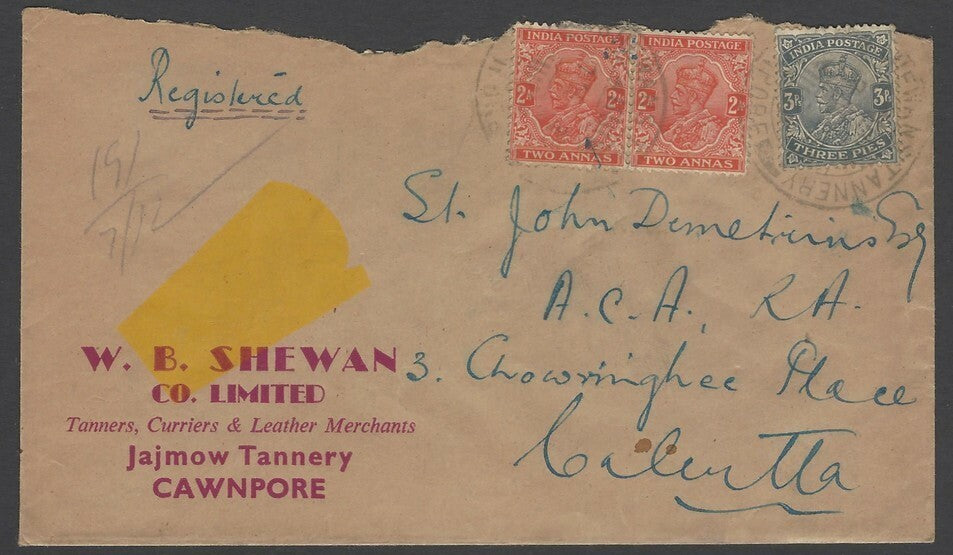 Registered
INDIA POSTAGE
2As
2As
TWO ANNAS
INDIA POSTAGE
2As
2As
TWO ANNAS
INDIA POSTAGE
3Ps
3Ps
THREE PIES
TANNERY
191
7/12
St. John Demetrius Esq
A.C.A., R.A.
3. Chowringhee Place
Calcutta
W. B. SHEWAN
CO. LIMITED
Tanners, Curriers & Leather Merchants
Jajmow Tannery
CAWNPORE